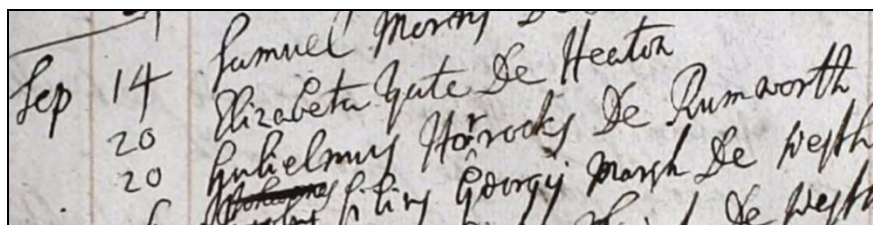 Samuel Morris De
Sep 14 Elizabeta Yate De Heaton
20 Gulielmus Horrocks De Rumworth
20 Johannes filius Georgij Marsh De Westh
De Westh